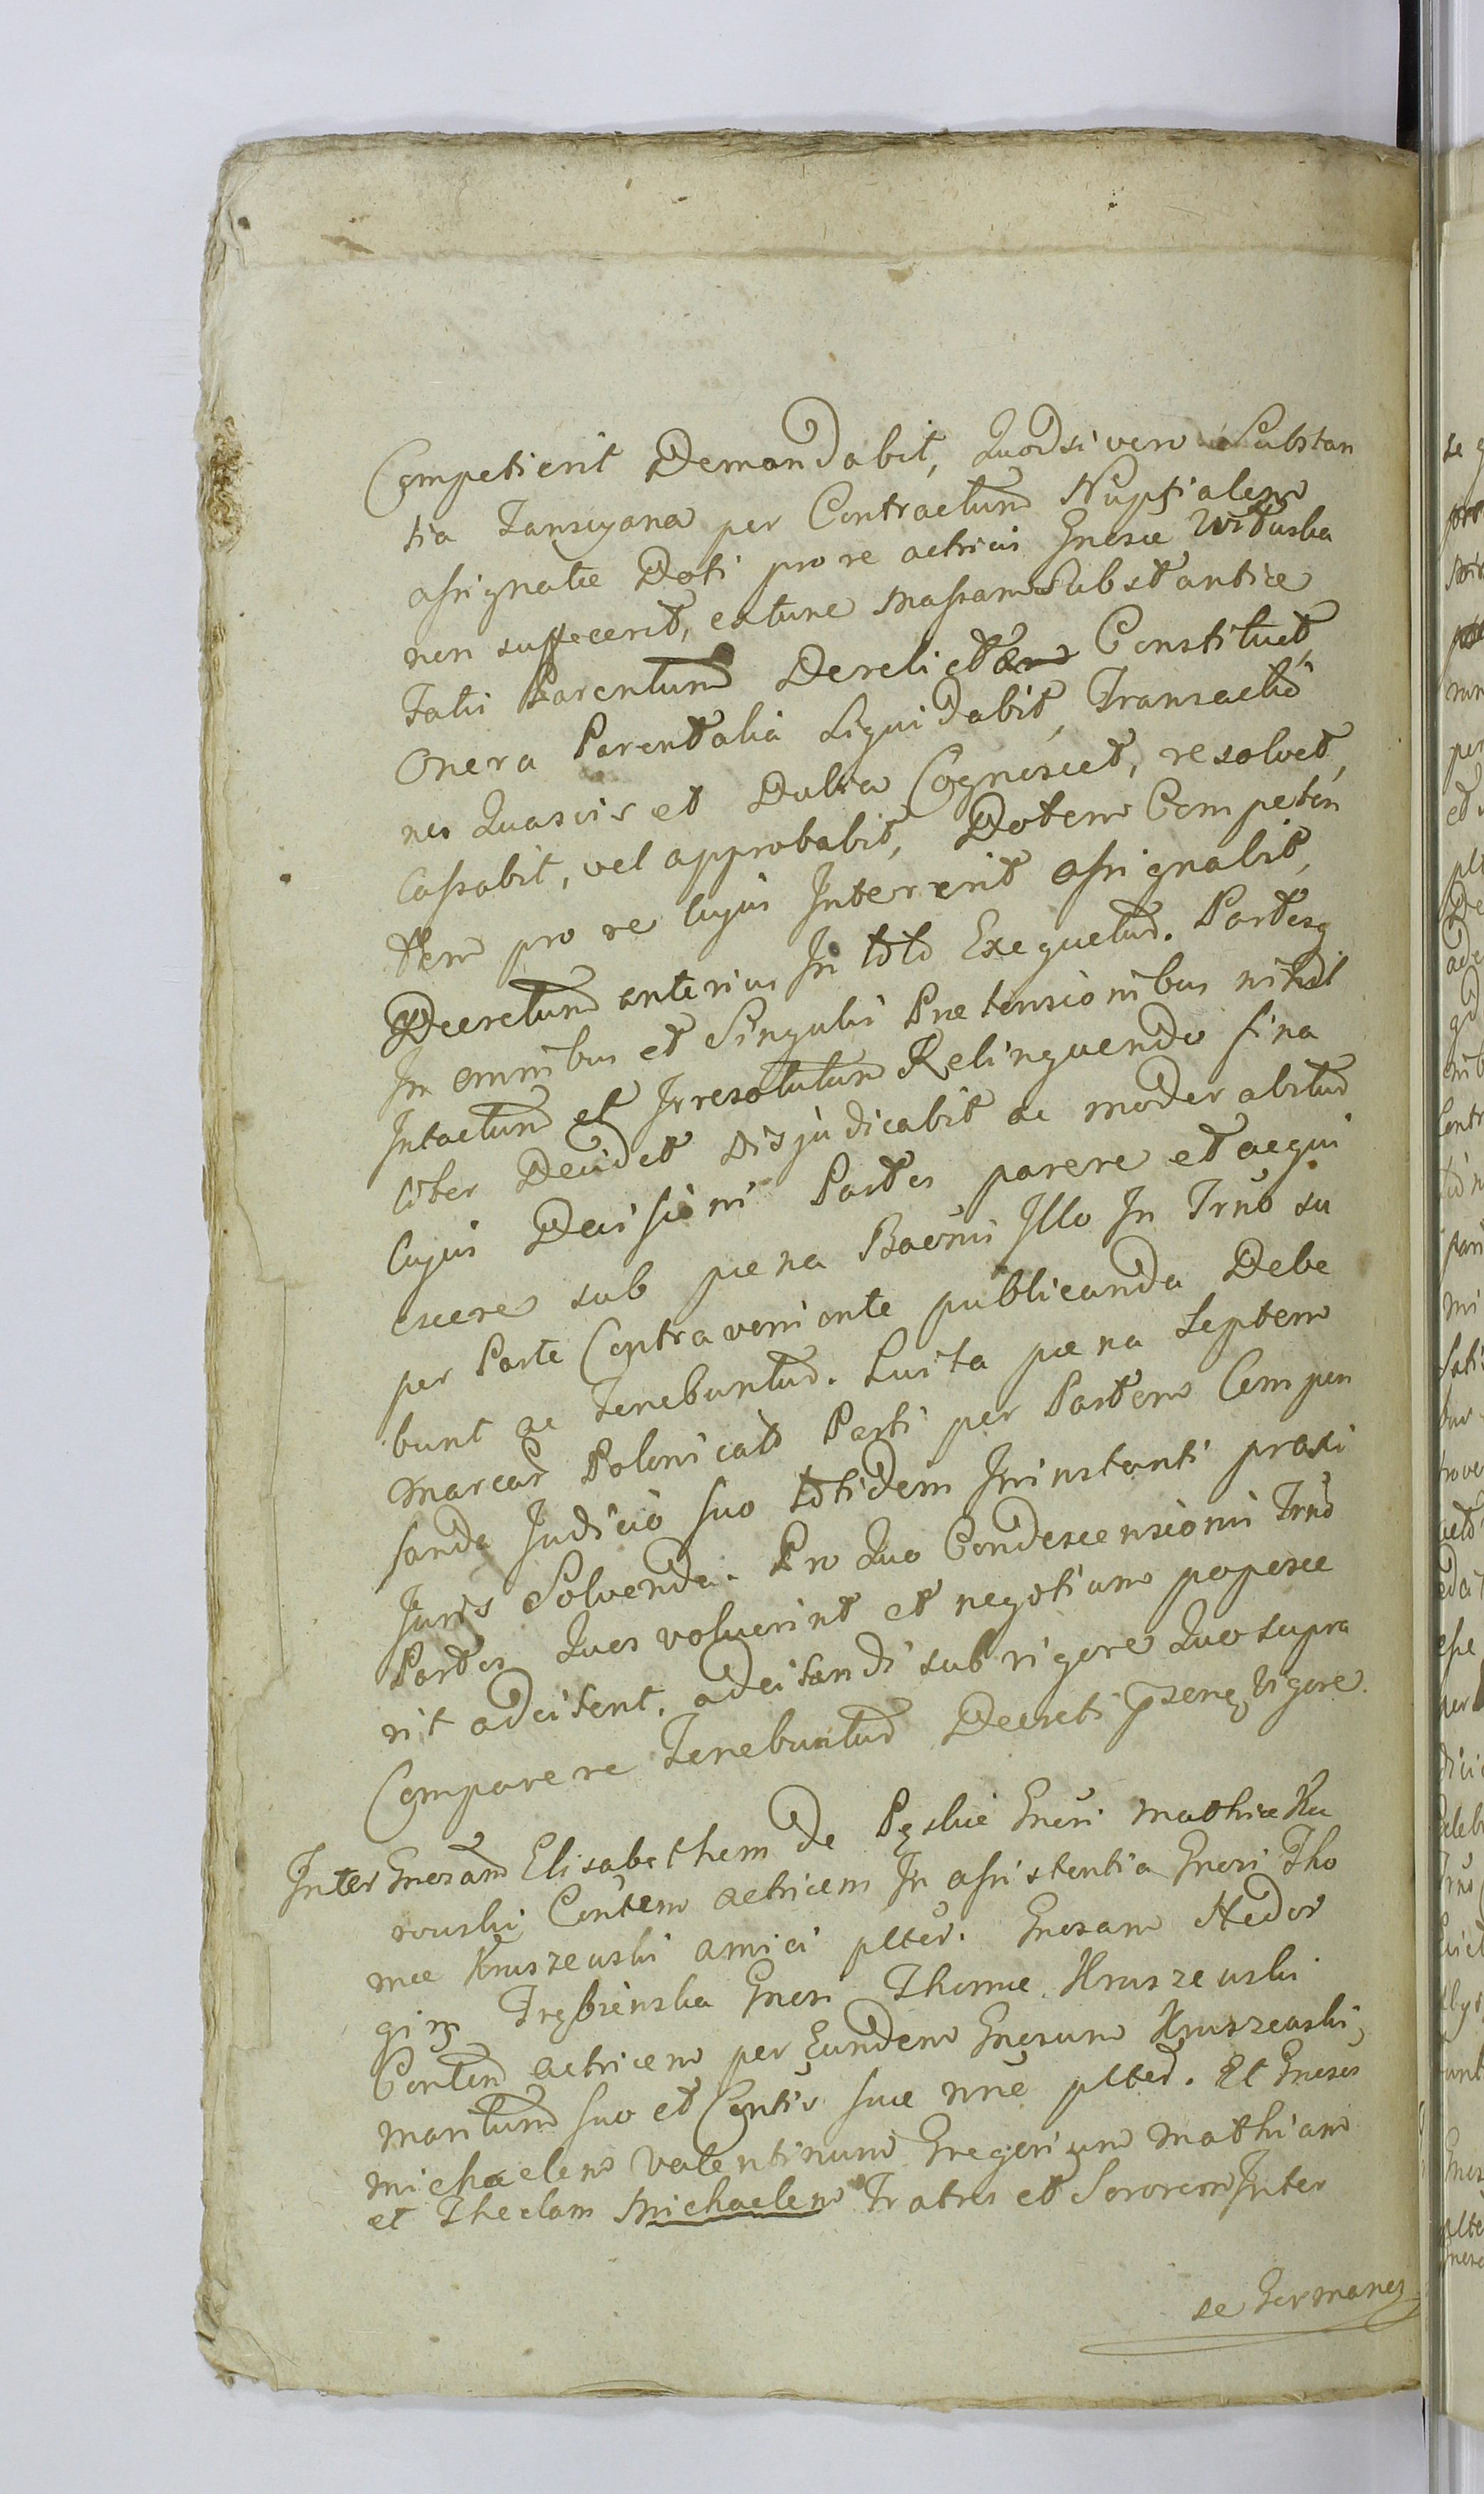 Competierit Demandabit, Quodsi vero Substan
tia Jansciyana per Contractum Nuptialem
assignatae Doti pro re actricis Gnosae Wituska
non suffecerit, extunc massam Substantiae
Fatis Parentum Derelictam Constituet,
Onera Parentalia Liquidabit, Transactio
nes Quasvis et Dubia Cognoscet, resolvet,
Cassabit, vel approbabit, Dotem Competen
tem pro re cujus Intererit assignabit,
Decretum anterius In toto Exequetur. Partesq
In omnibus et Singulis Praetensionibus nihil
Intactum et Irresolutum Relinquendo fina
liter Decidet Disjudicabit ac moderabitur
Cujus Decisioni Partes parere et acqui
escere sub paena Baonis Illo In Trno su
per Parte Contraveniente publicanda Debe
bunt ac Tenebuntur. Luita paena Septem
Marcar Polonical Parti per Partem Compen
sanda Judicio suo totidem Ininstanti praxi
Juris Solvenda. Pro Quo Condescensionis Trno
Partes Quos voluerint et negotium poposce
rit adcitent, adcitandi sub rigore Quo supra
Comparere Tenebuntur Decreti psenq Vigore.
Inter Gnosam Elisabetham de Pęskie Gnosi Mathiae Ku
rowski Contem actricem In assistentia Gnosi Tho
mae Kruszewski amici plter. Gnosam Hedvi
gim Trębinska Gnosi Thomae Kruszewski
Contem actricem per Eundem Gnosum Kruszewski,
maritum suo et Contis suae nne plter. Et Gnosos
Michaelem Valentinum Gregorium Mathiam
et Theclam Michaelem Fratres et Sororem Inter
se Germanos